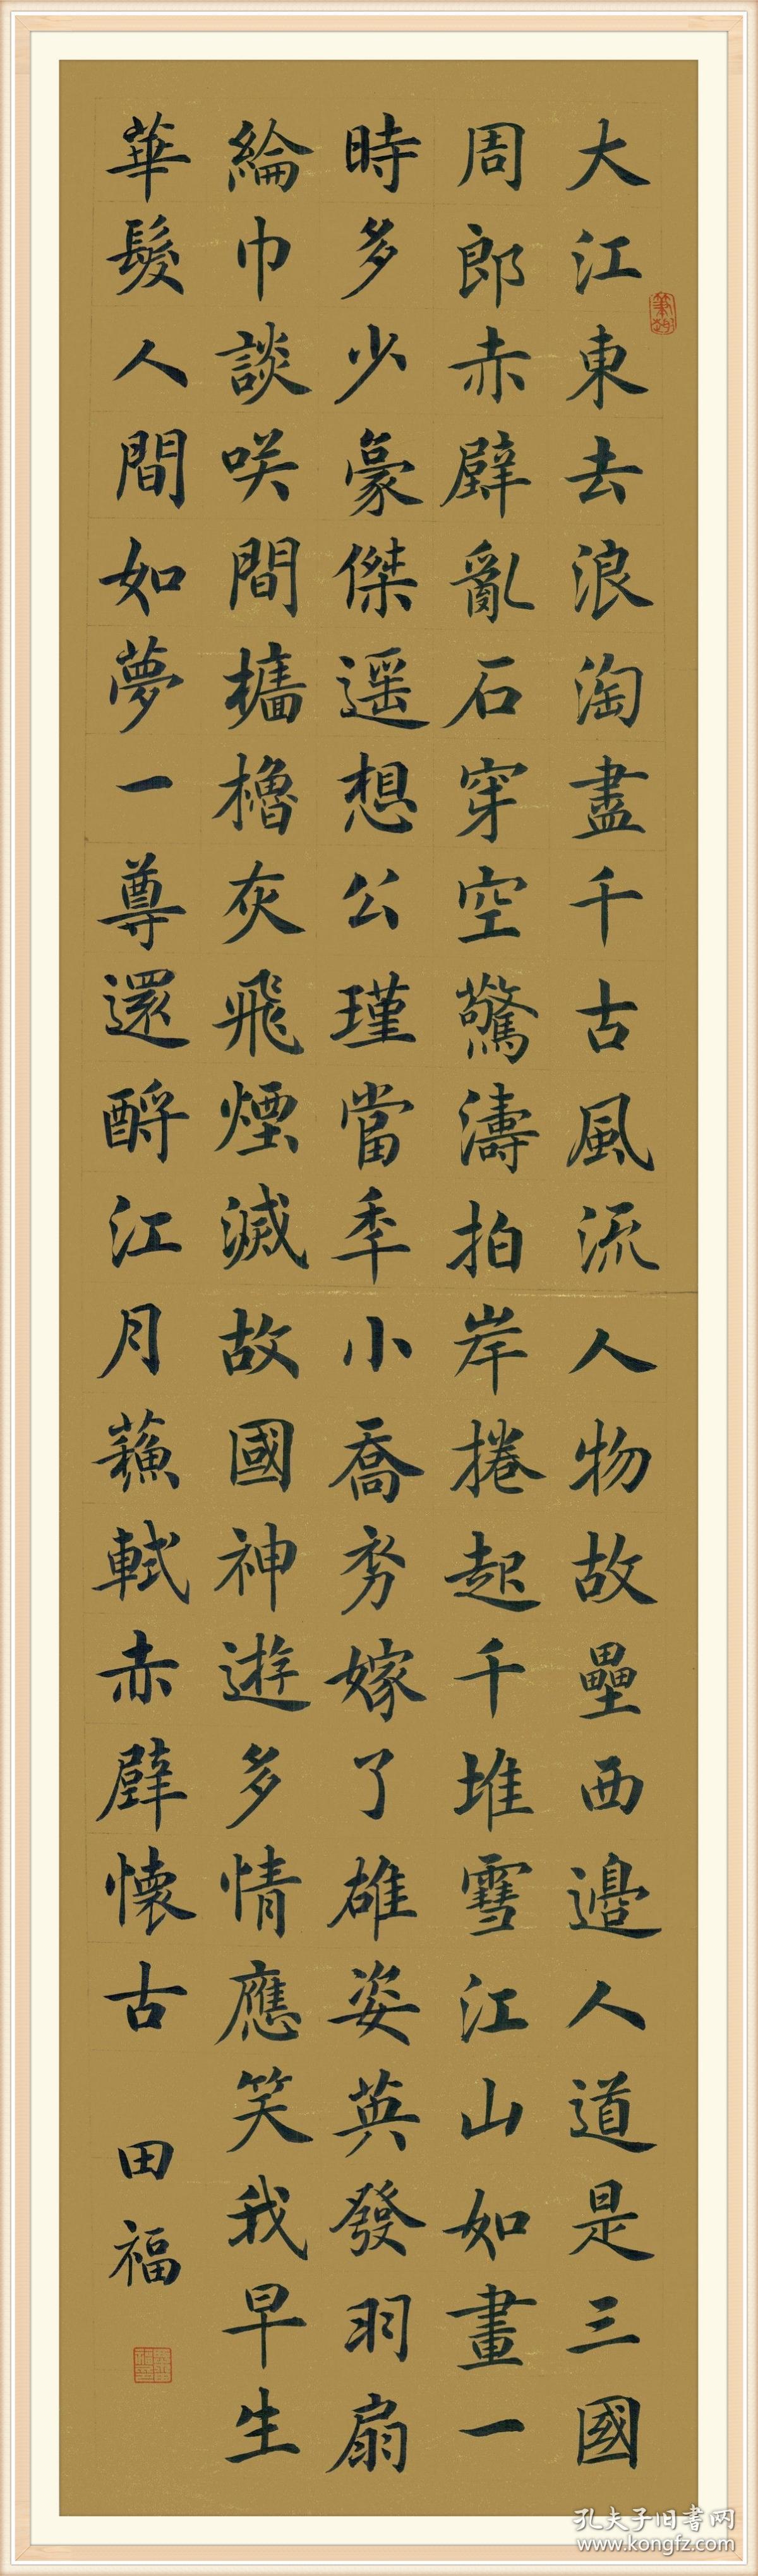 大江東去浪淘盡千古風流人物故壘西邊人道是三國
周郎赤壁亂石穿空驚濤拍岸捲起千堆雪江山如畫一
時多少豪傑遥想公瑾當秊小喬初嫁了雄姿英發羽扇
綸巾談咲間檣櫓灰飛煙滅故國神遊多情應笑我早生
華髮人間如夢一尊還酹江月蘓軾赤壁懷古
田福
孔夫子旧書网
www.kongfz.com